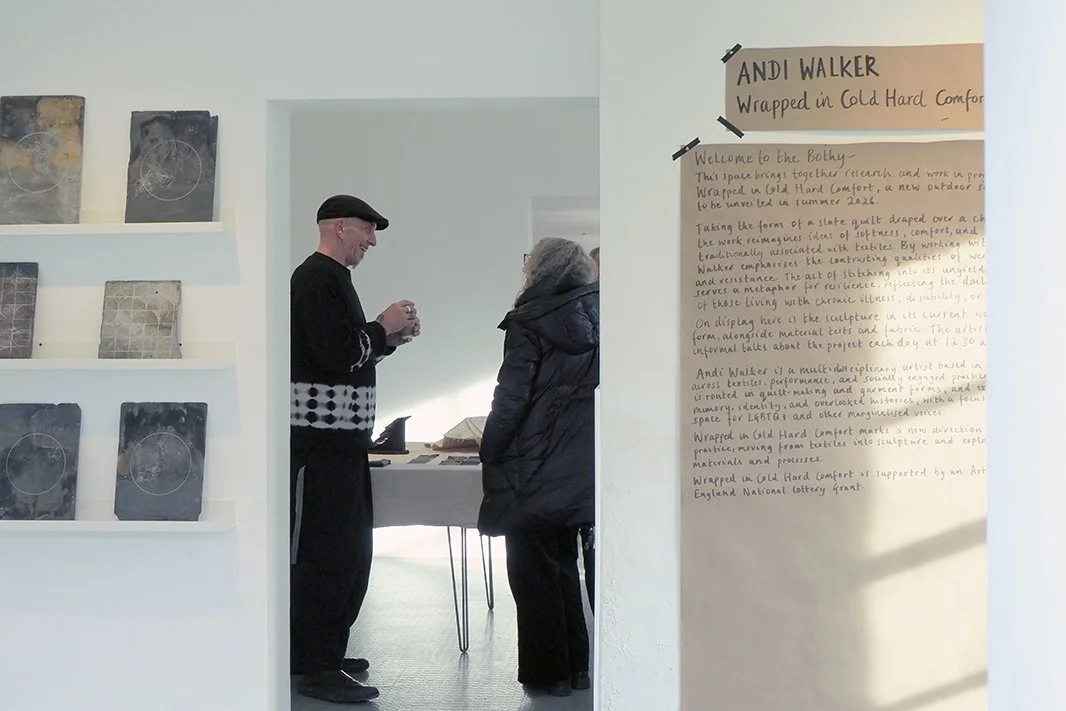 ANDI WALKER
Wrapped in Cold Hard Comfor
Welcome to the Bothy-
This space brings together research and work in pro
Wrapped in Cold Hard Comfort, a new outdoor s
to be unveiled in summer 2026.
Taking the form of a slate quilt draped over a ch
the work reimagines ideas of softness, comfort, and
traditionally associated with textiles. By working wit
Walker emphasises the contrasting qualities of we
and resistance. The act of stitching into its unyield
serves a metaphor for resilience, reflecting the dail
of those living with chronic illness, disability, or
On display here is the sculpture in its current w
form, alongside material tests and fabric. The artis
informal talks about the project each day at 12.30 a
Andi Walker is a multidisciplinary artist based in
across textiles, performance, and socially engaged practice
is rooted in quilt-making and garment forms, and ex
memory, identity, and overlooked histories, with a focus
space for LGBTQ+ and other marginalised voices.
Wrapped in Cold Hard Comfort marks a new direction
practice, moving from textiles into sculpture and explo
materials and processes.
Wrapped in Cold Hard Comfort is supported by an Art
England National Lottery Grant.